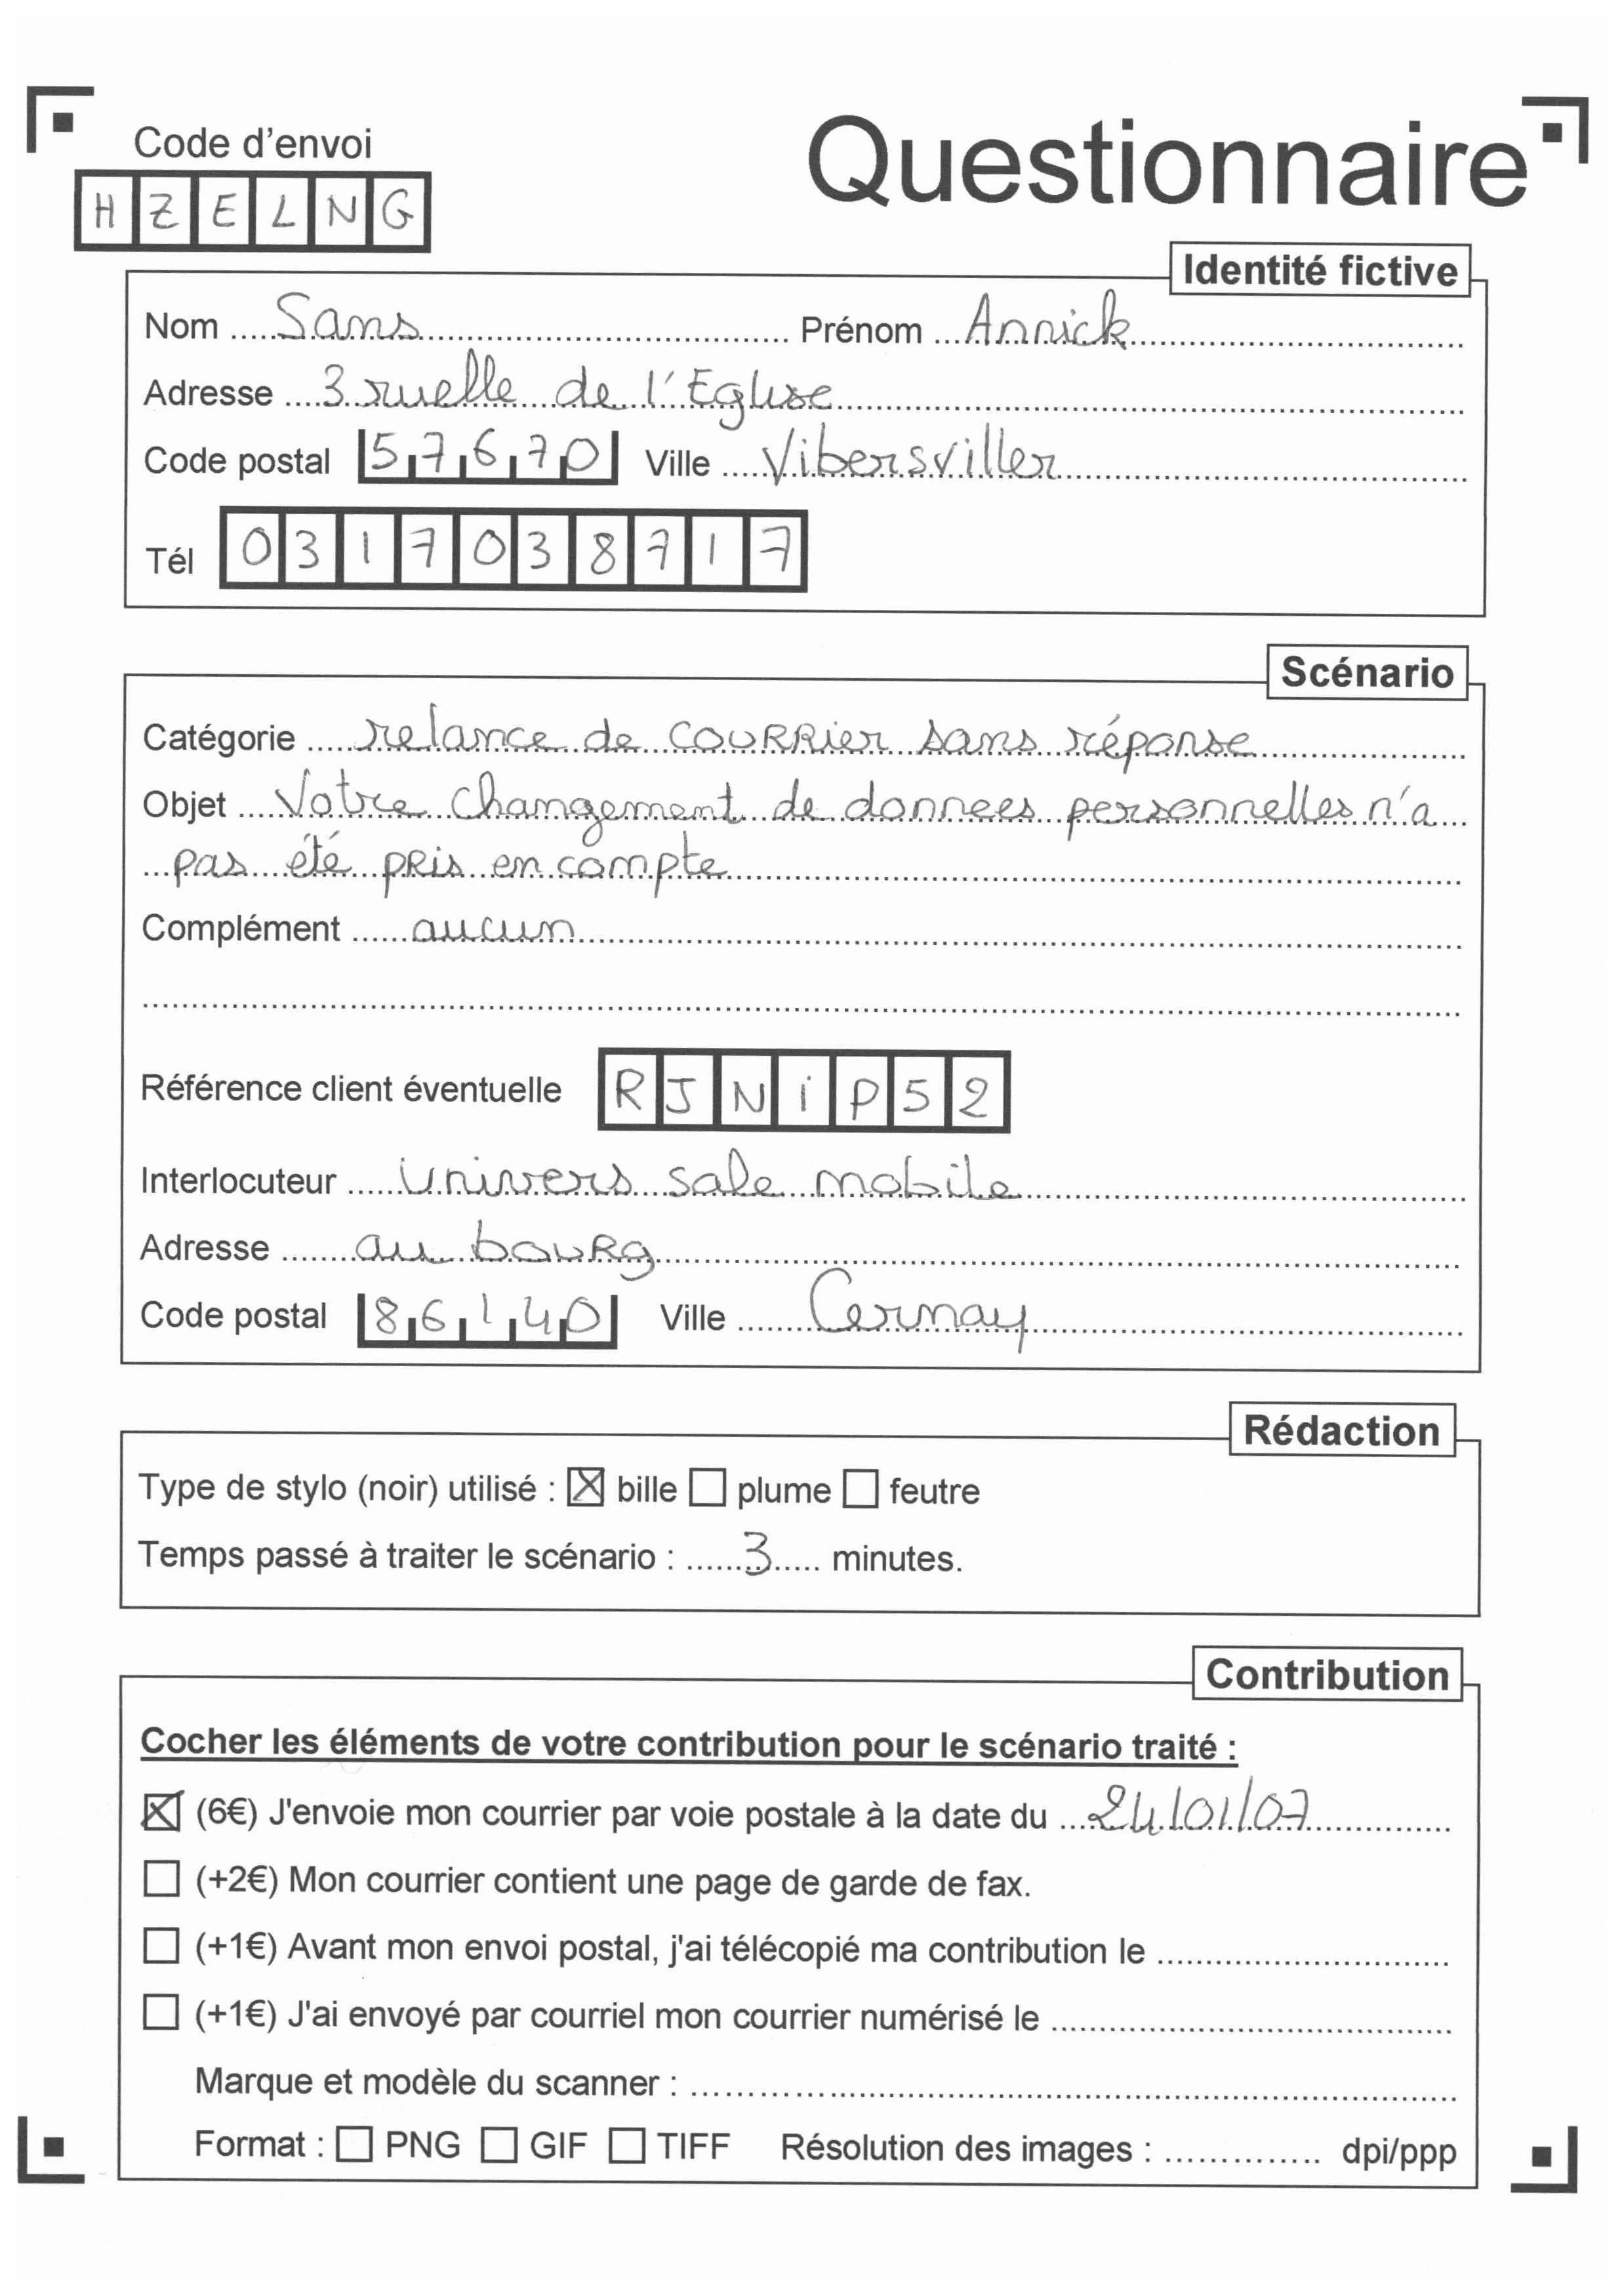 Code d'envoi
Questionnaire
HZELNG
Identité fictive
Nom Sans Prénom Annick
Adresse 3 ruelle de l'Eglise
Code postal 57670 Ville Vibersviller
Tél 0317038717
Scénario
Catégorie relance de courrier sans réponse
Objet Votre changement de donnees personnelles n'a
pas été pris en compte
Complément aucun
Référence client éventuelle RJNiP52
Interlocuteur Univers sale mobile
Adresse au bourg
Code postal 86140 Ville Cernay
Rédaction
Type de stylo (noir) utilisé : ☒ bille ☐ plume ☐ feutre
Temps passé à traiter le scénario : 3 minutes.
Contribution
Cocher les éléments de votre contribution pour le scénario traité :
☒ (6€) J'envoie mon courrier par voie postale à la date du 24/01/07
☐ (+2€) Mon courrier contient une page de garde de fax.
☐ (+1€) Avant mon envoi postal, j'ai télécopié ma contribution le
☐ (+1€) J'ai envoyé par courriel mon courrier numérisé le
Marque et modèle du scanner :
Format : ☐ PNG ☐ GIF ☐ TIFF Résolution des images : dpi/ppp